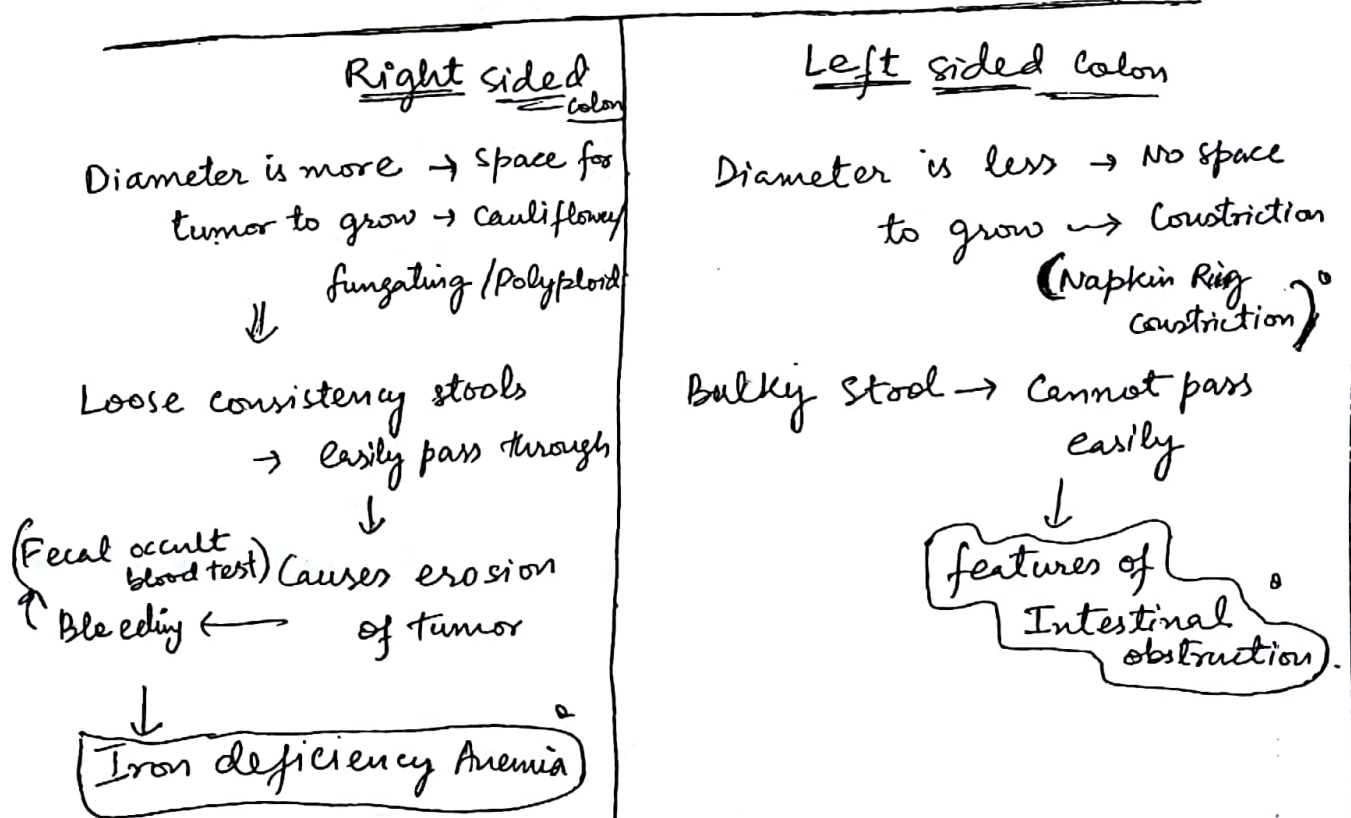 Right sided
colon
Diameter is more → space for
tumor to grow → cauliflower/
fungating /Polyploid
⇓
Loose consistency stools
→ easily pass through
↓
(Fecal occult
blood test) Causes erosion
↑ Bleeding ← of tumor
↓
Iron deficiency Anemia
Left sided Colon
Diameter is less → No space
to grow → Constriction
(Napkin Ring
constriction)
Bulky Stool → Cannot pass
easily
↓
features of
Intestinal
obstruction.